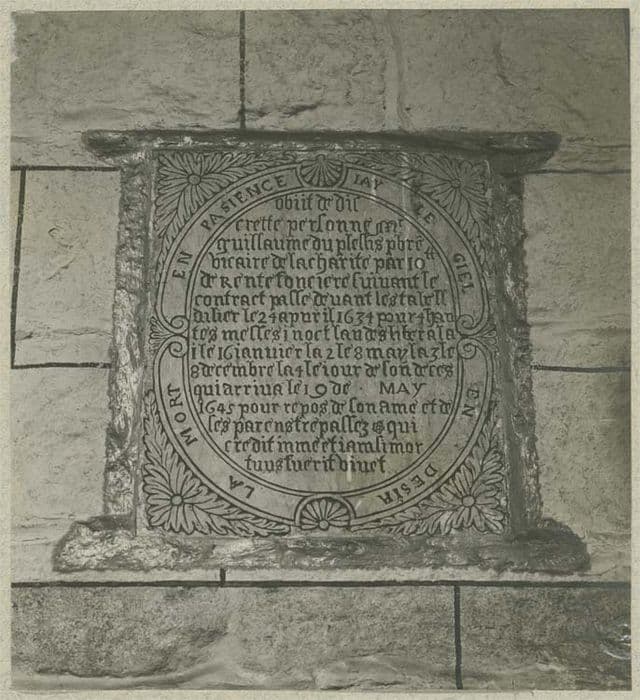 EN PASIENCE IAY LE CIEL
EN DESIR
LA MORT
obiit de dis
crette personne Mre
guillaume du plessis pbre
vicaire de la charité par 10tt
de Rente fonciere suivant le
contract passé devant les tabell
dilier le 24 apvril 1634 pour 4 hau
tes messes 1 noct laudes libera la
i le 16 ianvier la 2 le 8 may la 3 le
8 decembre la 4 le iour de son deces
qui arriva le 19 de · MAY
1645 pour repos de son ame et de
ses parens trepassez & qui
credit in me etiam si mor
tuus fuerit vivet